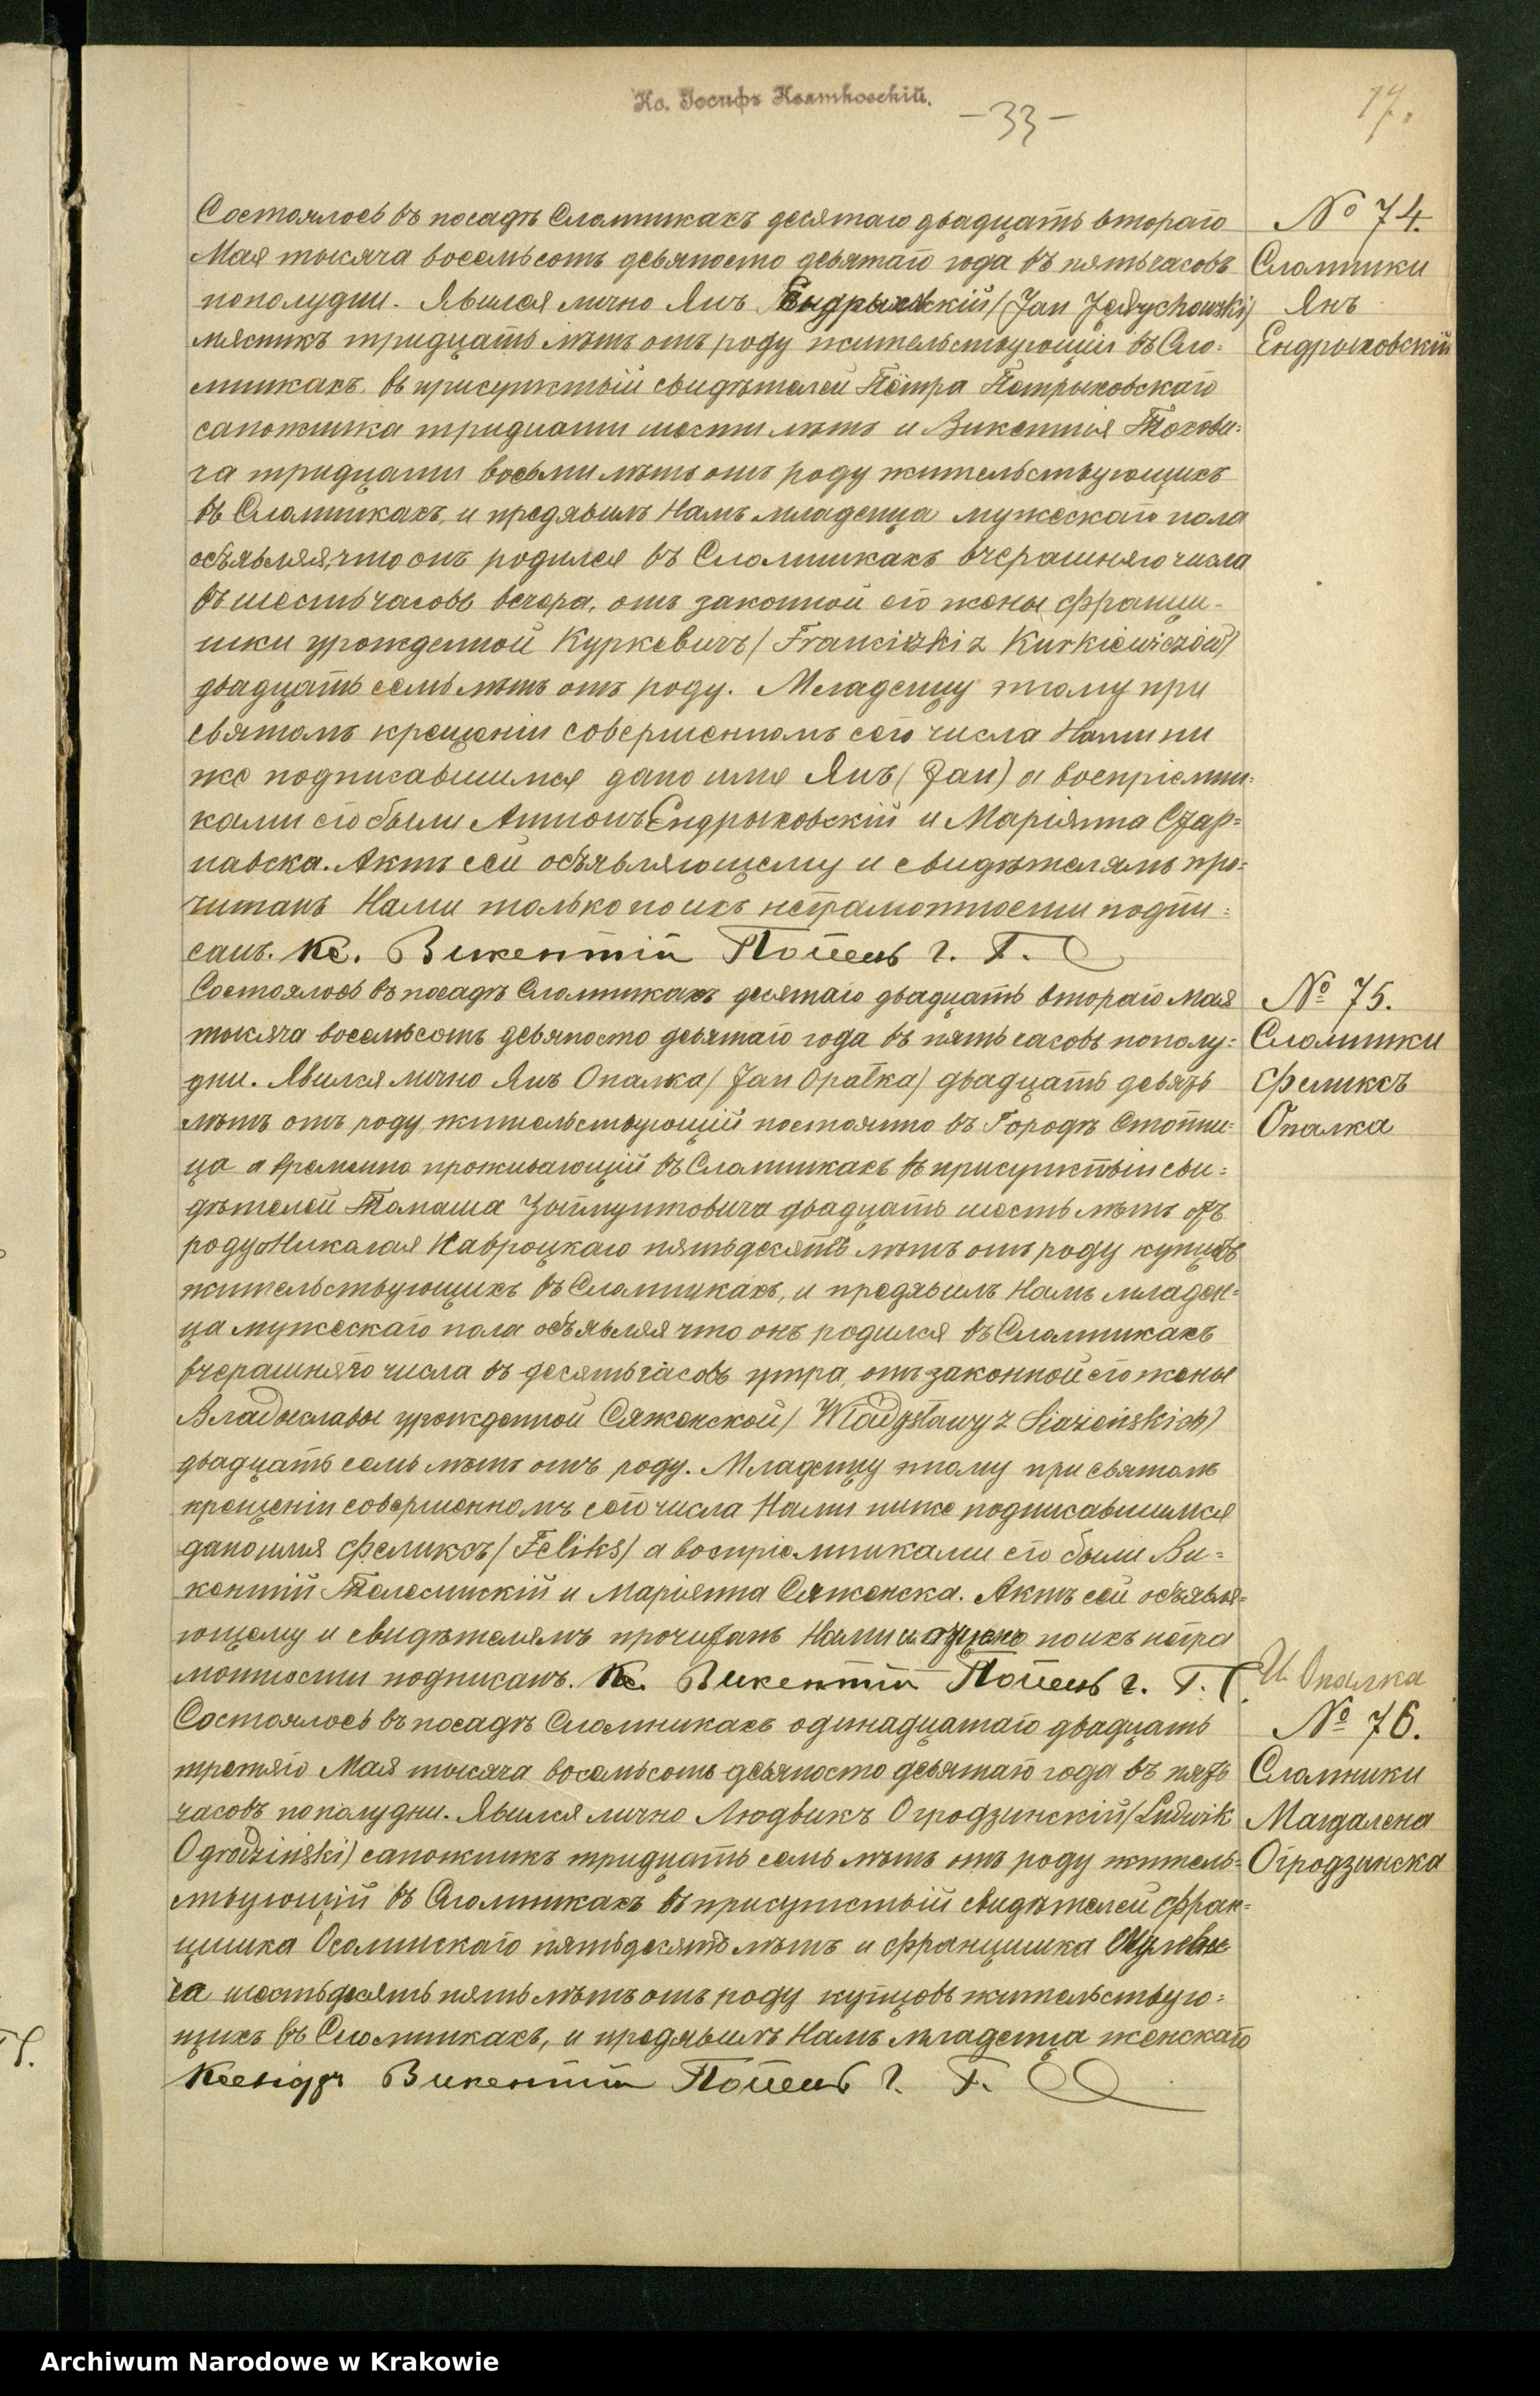 Кс. Іосифъ
-33-
17.
№ 74.
Сломники
Янъ
Ендрыховскій
Состоялось въ посадѣ Сломникахъ десятаго двадцать втораго
Мая тысяча восемьсотъ девяносто девятаго года въ пять часовъ
пополудни. Явился лично Янъ Ендрыховскій (Jan Jędrychowski)
мясникъ тридцать лѣтъ отъ роду жительствующій въ Сло-
мникахъ въ присутствіи свидѣтелей Пётра Петрыковскаго
сапожника тридцати шести лѣтъ и Викентія
ча тридцати восьми лѣтъ отъ роду жительствующихъ
въ Сломникахъ, и предявилъ Намъ младенца мужескаго пола
объявляя, что онъ родился въ Сломникахъ вчерашняго числа
въ шесть часовъ вечера, отъ законной его жены Франци-
шки урожденной Куркевичъ (Franciszki z Kurkiewiczów)
двадцать семь лѣтъ отъ роду. Младенцу этому при
святомъ крещеніи совершенномъ сего числа Нами ни
же подписавшимся дано имя Янъ (Jan) а воспріемни-
ками его были Антонъ Ендрыховскій и Маріянна Чар-
навска. Актъ сей объявляющему и свидѣтелямъ про-
читанъ Нами только по ихъ неграмотности подпи-
санъ. Кс. Викентій Попецъ г. Г.
№ 75.
Сломники
Феликсъ
Опалка
Состоялось въ посадѣ Сломникахъ десятаго двадцать втораго Мая
тысяча восемьсотъ девяносто девятаго года въ пять часовъ пополу-
дни. Явился лично Янъ Опалка (Jan Opałka) двадцать девять
лѣтъ отъ роду, жительствующій постоянно въ Городѣ Стопни-
ца а временно проживающій въ Сломникахъ въ присутствіи сви-
дѣтелей Томаша двадцать шесть лѣтъ отъ
роду и Николая Навроцкаго пятьдесятъ лѣтъ отъ роду купцовъ
жительствующихъ въ Сломникахъ, и предявилъ Намъ младен-
ца мужескаго пола объявляя что онъ родился въ Сломникахъ
вчерашняго числа въ десять часовъ утра, отъ законной его жены
Владыславы урожденной Сяженской (Władysławy z Siazieńskich)
двадцать семь лѣтъ отъ роду. Младенцу этому при святомъ
крещеніи совершенномъ сего числа Нами ниже подписавшимся
дано имя Феликсъ (Feliks) а воспріемниками его были Ви-
кентій и Маріянна Сяженска. Актъ сей объявля-
ющему и свидѣтелямъ прочитанъ Нами и по ихъ негра
мотности подписанъ. Кс. Викентій Попецъ г. Г.
И. Опалка
№ 76.
Сломники
Магдалена
Огродзинска
Состоялось въ посадѣ Сломникахъ одинадцатаго двадцать
третяго Мая тысяча восемьсотъ девяносто девятаго года въ пять
часовъ пополудни. Явился лично Людвикъ Огродзинскій (Ludwik
Ogrodziński) сапожникъ тридцать семь лѣтъ отъ роду житель-
ствующій въ Сломникахъ въ присутствій свидѣтелей Фран-
цишка Осалинскаго пятьдесятъ лѣтъ и Францишка
ча шестьдесятъ пять лѣтъ отъ роду купцовъ жительствую-
щихъ въ Сломникахъ, и предявилъ Намъ младенца женскаго
Ксендзъ Викентій Попецъ г. Г.
Archiwum Narodowe w Krakowie